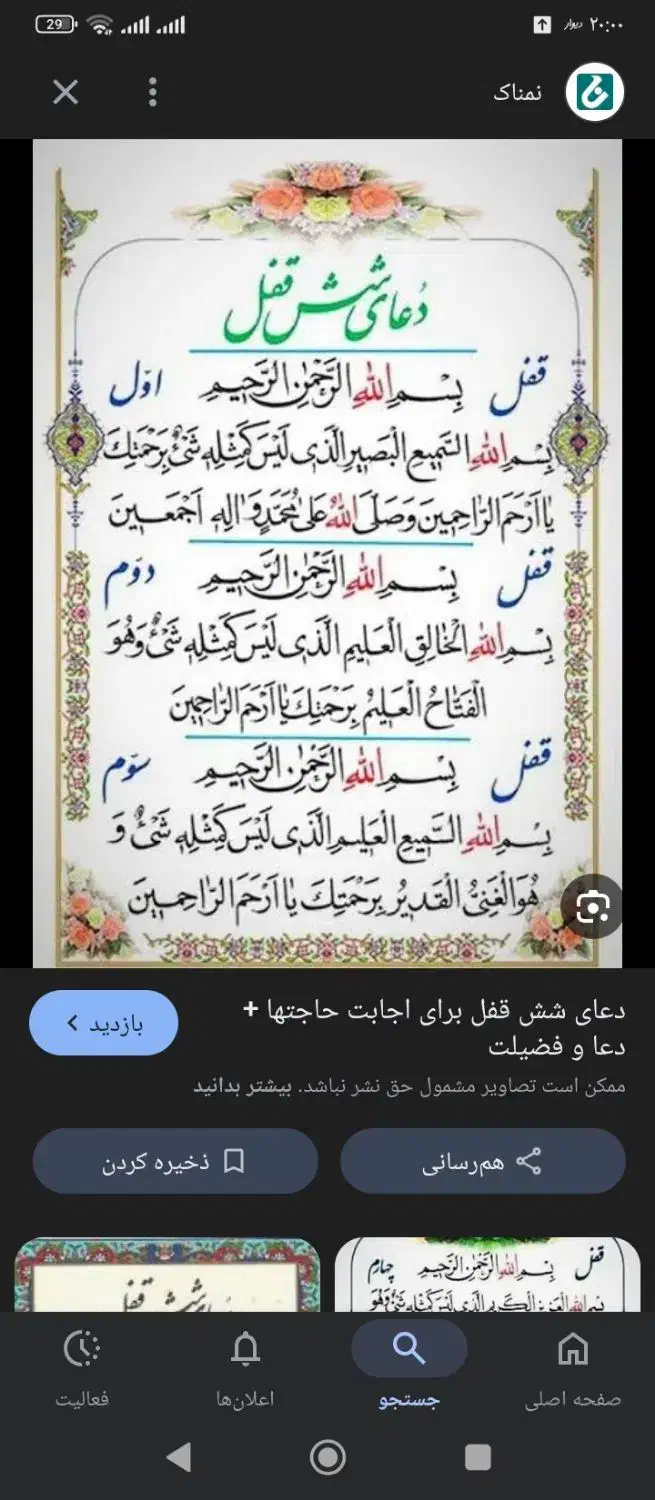 ۲۰:۰۰ دیوار
29
نمناک
دُعای شش قفل
قفل اوّل
بِسْمِ اللّٰهِ الرَّحْمٰنِ الرَّحِیمِ
بِسْمِ اللّٰهِ السَّمِیعِ الْبَصِیرِ الَّذِی لَیْسَ کَمِثْلِهِ شَیْءٌ بِرَحْمَتِكَ
یٰا اَرْحَمَ الرّٰاحِمِینَ وَصَلَّی اللّٰهُ عَلیٰ مُحَمَّدٍ وَ اٰلِهِ اَجْمَعِینَ
قفل دوّم
بِسْمِ اللّٰهِ الرَّحْمٰنِ الرَّحِیمِ
بِسْمِ اللّٰهِ الْخٰالِقِ الْعَلِیمِ الَّذِی لَیْسَ کَمِثْلِهِ شَیْءٌ وَهُوَ
الْفَتّٰاحُ الْعَلِیمُ بِرَحْمَتِكَ یٰا اَرْحَمَ الرّٰاحِمِینَ
قفل سوّم
بِسْمِ اللّٰهِ الرَّحْمٰنِ الرَّحِیمِ
بِسْمِ اللّٰهِ السَّمِیعِ الْعَلِیمِ الَّذِی لَیْسَ کَمِثْلِهِ شَیْءٌ وَ
هُوَ الْغَنِیُّ الْقَدِیرُ بِرَحْمَتِكَ یٰا اَرْحَمَ الرّٰاحِمِینَ
دعای شش قفل برای اجابت حاجتها +
دعا و فضیلت
بازدید
ممکن است تصاویر مشمول حق نشر نباشد. بیشتر بدانید
هم‌رسانی
ذخیره کردن
قفل چهارم
بِسْمِ اللّٰهِ الرَّحْمٰنِ الرَّحِیمِ
بِسْمِ اللّٰهِ الْعَزِیزِ الْکَرِیمِ الَّذِی لَیْسَ کَمِثْلِهِ شَیْءٌ وَهُوَ
شش قفل
صفحه اصلی
جستجو
اعلان‌ها
فعالیت